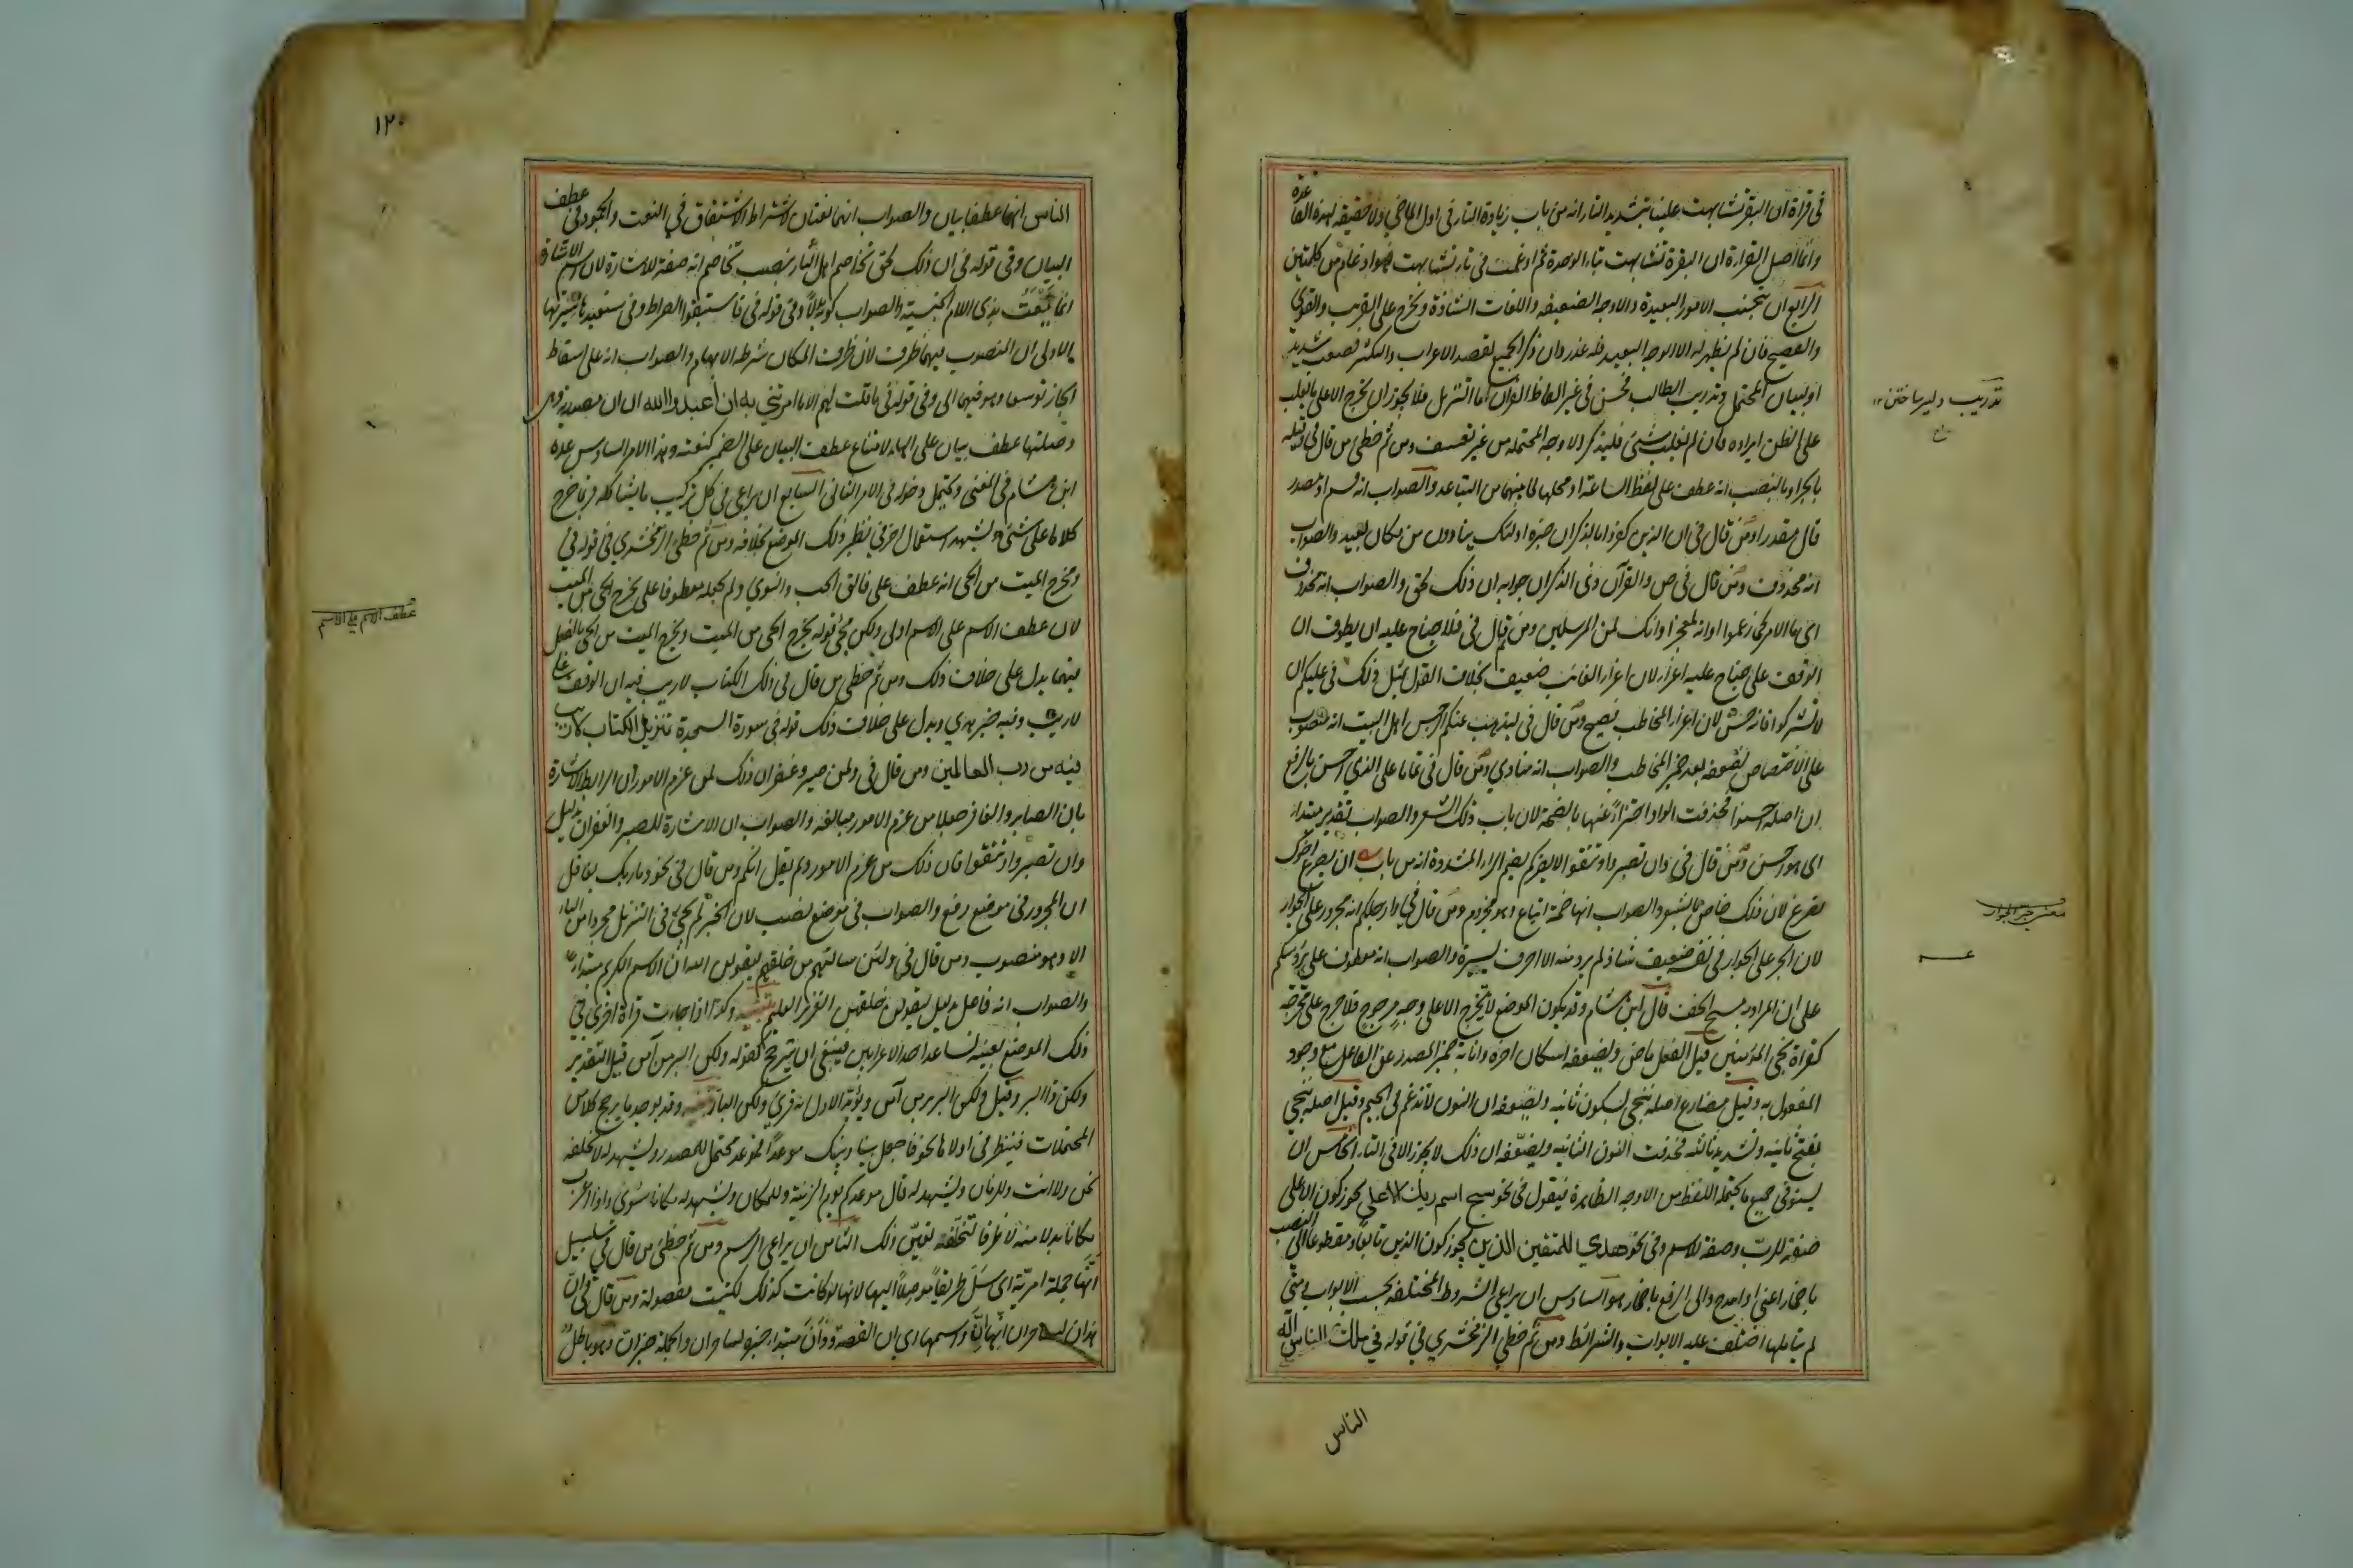 في قراة ان البقر تشابهت علينا بتشديد التا انه من باب زيادة التا في اول الماضي ولا حقيقة لهذه القاعدة
وانما اصل القراءة ان البقرة تشابهت بتاء الوحدة ثم ادغمت في تاء تشابهت فهو ادغام من كلمتين
الرابع ان يتجنب الامور البعيدة والاوجه الضعيفة واللغات الشاذة ويخرج على القريب والقوي
والفصيح فان لم يظهر له الا الوجه البعيد فله عذر وان ذكر الجميع لقصد الاعراب والتكثير فصعب شديد
او لبيان المحتمل وتدريب الطالب فحسن في غير الفاظ القران اما التنزيل فلا يجوز ان يخرج الا على ما يغلب
على الظن ارادته فان لم يغلب شئ فليذكر الاوجه المحتملة من غير تعسف ومن ثم خطئ من قال في وقيله
بالجر او بالنصب انه عطف على لفظ الساعة او محلها لما بينهما من التباعد والصواب انه قسم او مصدر
قال مقدرا ومن قال في ان الذين كفروا بالذكر ان خبره اولئك ينادون من مكان بعيد والصواب
انه محذوف ومن قال في ص والقرآن ذي الذكر ان جوابه ان ذلك لحق والصواب انه محذوف
اى ما الامر كما زعموا او انه لمعجز او انك لمن المرسلين ومن قال في فلا جناح عليه ان يطوف ان
الوقف على جناح وعليه اغراء لان اغراء الغائب ضعيف بخلاف القول بمثل ذلك في عليكم ان
لا تشركوا فانه حسن لان اغراء المخاطب فصيح ومن قال في ليذهب عنكم الرجس اهل البيت انه منصوب
على الاختصاص لضعفه بعد ضمير المخاطب والصواب انه منادي ومن قال في تماما على الذي احسن بالرفع
ان اصله احسنوا فحذفت الواو اجتزاءً عنها بالضمة لان باب ذلك الشعر والصواب تقدير مبتداء
اى هو احسن ومن قال في وان تصبروا وتتقوا لا يضركم بضم الراء المشددة انه من باب ان يصرع اخوك
تصرع لان ذلك خاص بالشعر والصواب انها ضمة اتباع وهو مجزوم ومن قال في وارجلكم انه مجرور على الجوار
لان الجر على الجوار في نفسه ضعيف شاذ لم يرد منه الا احرف يسيرة والصواب انه معطوف على برؤسكم
على ان المراد به مسح الخف قال ابن هشام وقد يكون الموضع لا يتخرج الا على وجه مرجوح فلا حرج على مخرجه
كقراة نجي المؤمنين قيل الفعل ماض ويضعفه اسكان اخره وانابة ضمير المصدر عن الفاعل مع وجود
المفعول به وقيل مضارع اصله ننجي بسكون ثانيه ويضعفه ان النون لا تدغم في الجيم وقيل اصله ننجي
بفتح ثانيه وتشديد ثالثه فحذفت النون الثانية ويضعفه ان ذلك لا يجوز الا في التاء الخامس ان
يستوفي جميع ما يحتمله اللفظ من الاوجه الظاهرة فيقول في نحو سبح اسم ربك الاعلى يجوز كون الاعلى
صفة للرب وصفة للاسم وفي نحو هدي للمتقين الذين يجوز كون الذين تابعا ومقطوعا الى النصب
باضمار اعني او امدح والى الرفع باضمار هو السادس ان يراعى الشروط المختلفة بحسب الابواب ومتي
لم يتاملها اختلفت عليه الابواب والشرائط ومن ثم خطئ الزمخشري في قوله في ملك الناس اله
الناس
تدريب دلير ساختن
معنى جر الجوار
١٢٠
الناس انهما عطفا بيان والصواب انهما نعتان لاشتراط الاشتقاق في النعت والجمود في عطف
البيان وفي قوله في ان ذلك لحق تخاصم اهل النار بنصب تخاصم انه صفة للاشارة لان اسم الاشارة
انما ينعت بذى اللام الجنسية والصواب كونه بدلاً وفي قوله في فاستبقوا الصراط وفي سنعيدها سيرتها
الاولى ان المنصوب فيهما ظرف لان ظرف المكان شرطه الابهام والصواب انه على اسقاط
الجار توسعا وهو فيهما الى وفي قوله في ما قلت لهم الا ما امرتني به ان اعبدوا الله ان ان مصدرية وهي
وصلتها عطف بيان على الهاء لامتناع عطف البيان على الضمير كنعته وهذا الامر السادس عده
ابن هشام في المغني ويحتمل دخوله في الامر الثاني السابع ان يراعى في كل تركيب ما يشاكله فربما خرج
كلاما على شئ ويشهد استعمال اخر في نظير ذلك الموضع بخلافه ومن ثم خطئ الزمخشري في قوله في
ومخرج الميت من الحى انه عطف على فالق الحب والنوي ولم يجعله معطوفا على يخرج الحى من الميت
لان عطف الاسم على الاسم اولى ولكن مجئ قوله يخرج الحى من الميت ويخرج الميت من الحى بالفعل
فيهما يدل على خلاف ذلك ومن ثم خطئ من قال في ذلك الكتاب لا ريب فيه ان الوقف على
لا ريب وفيه خبر هدي ويدل على خلاف ذلك قوله في سورة السجدة تنزيل الكتاب لا ريب
فيه من رب العالمين ومن قال في ولمن صبر وغفر ان ذلك لمن عزم الامور ان الرابط الاشارة
بان الصابر والغافر جعلا من عزم الامور مبالغة والصواب ان الاشارة للصبر والغفران بدليل
وان تصبروا وتتقوا فان ذلك من عزم الامور ولم يقل انكم ومن قال في نحو وما ربك بغافل
ان المجرور في موضع رفع والصواب في موضع نصب لان الخبر لم يجئ في التنزيل مجردا من الباء
الا وهو منصوب ومن قال في ولئن سالتهم من خلقهم ليقولن الله ان الاسم الكريم مبتداء
والصواب انه فاعل بدليل ليقولن خلقهن العزيز العليم تنبيه وكذا اذا جاءت قراة اخرى في
ذلك الموضع بعينه تساعد احد الاعرابين فينبغي ان يترجح كقوله ولكن البر من آمن قيل التقدير
ولكن ذا البر وقيل ولكن البر بر من آمن ويؤيد الاول انه قرئ ولكن البار تنبيه وقد يوجد ما يرجح كلا من
المحتملات فينظر في اولاها نحو فاجعل بيننا وبينك موعداً فموعد محتمل للمصدر ويشهد له لا نخلفه
نحن ولا انت وللزمان ويشهد له قال موعدكم يوم الزينة وللمكان ويشهد له مكانا سُوى واذا اعرب
مكانا بدلا منه لا ظرفا لنخلفه تعين ذلك الثامن ان يراعى الرسم ومن ثم خطئ من قال في سلسبيل
انها جملة امرية اى سل طريقاً موصلاً اليها لانها لو كانت كذلك لكتبت مفصولة ومن قال في ان
هذان لساحران انها ان واسمها اي ان القصة وذان مبتداء خبره لساحران والجملة خبر ان وهو باطل
عطف الاسم على الاسم